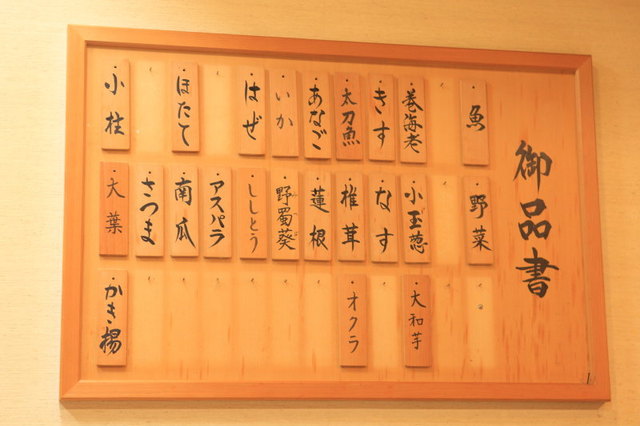 御品書
魚
巻海老
きす
太刀魚
あなご
いか
はぜ
ほたて
小柱
野菜
小玉葱
なす
椎茸
蓮根
野蜀葵
ししとう
アスパラ
南瓜
さつま
大葉
大和芋
オクラ
かき揚